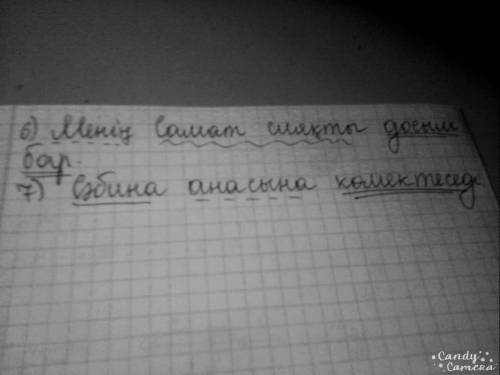 6) Менің Самат сияқты досым
бар.
7) Сәбина анасына көмектесед
Candy
Camera